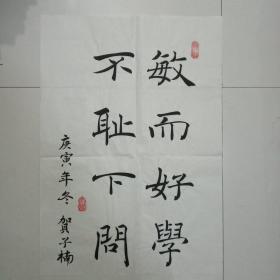 敏而好學
不耻下問
庚寅年冬 賀子楠